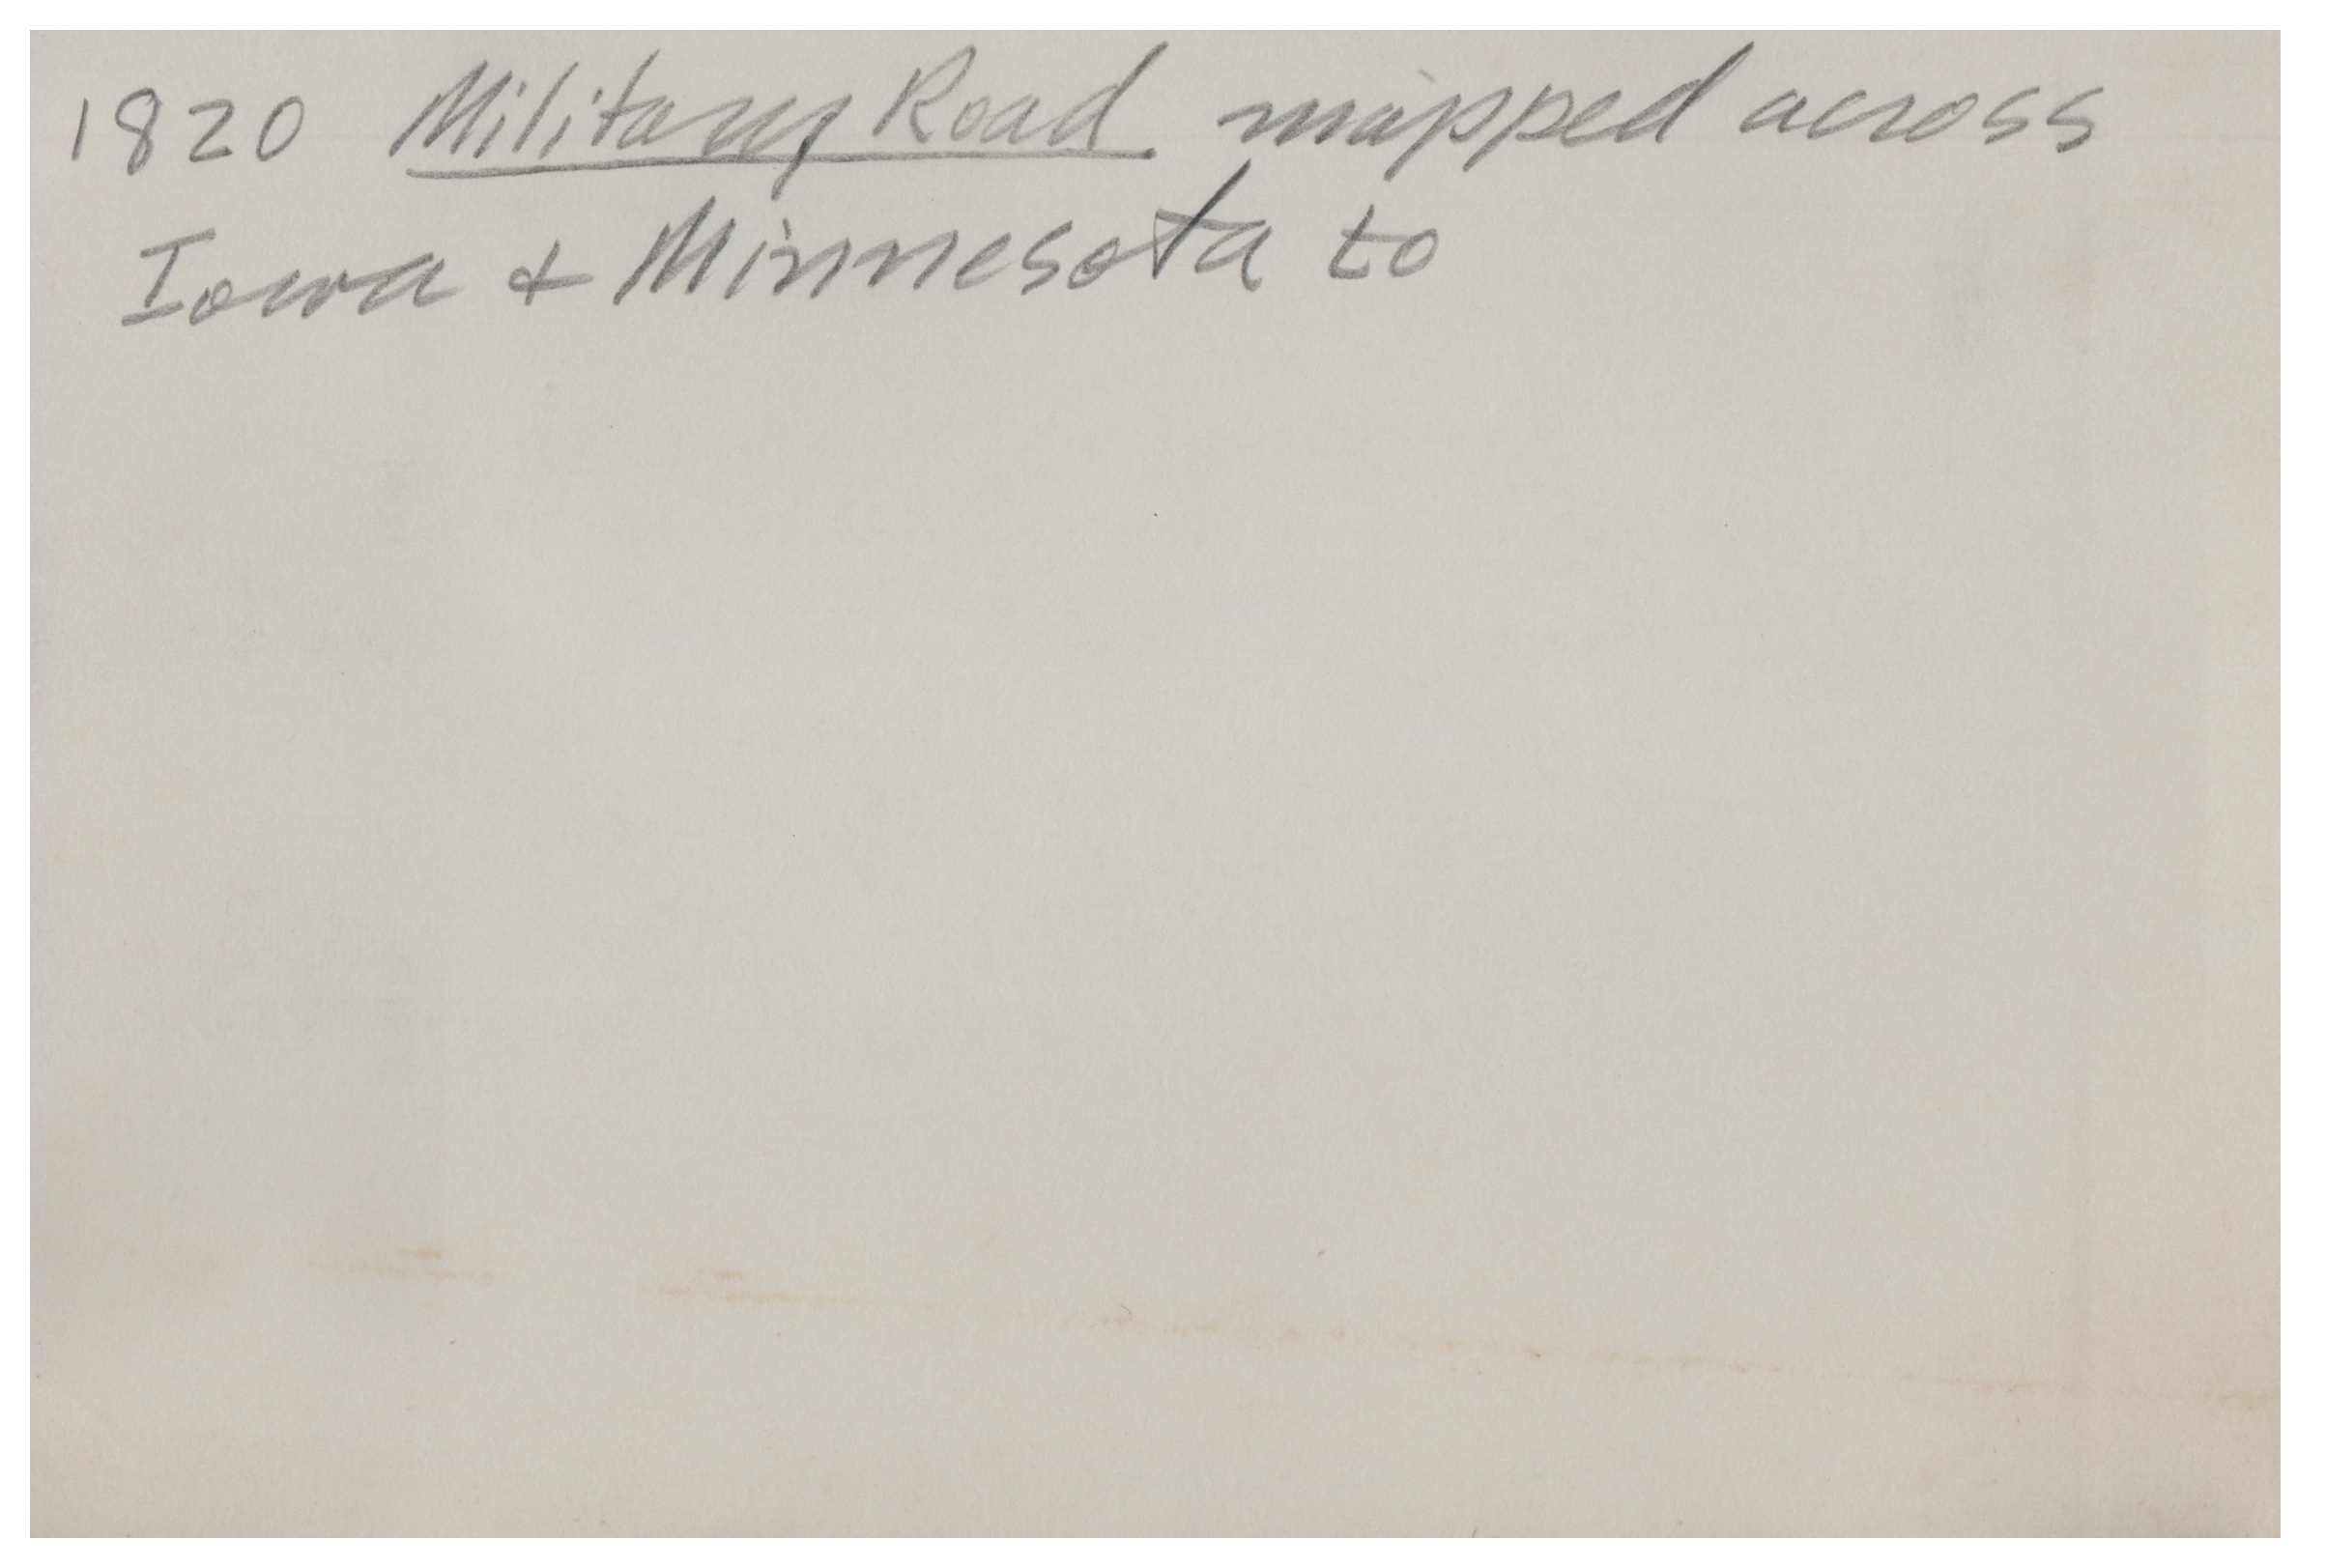 1820 Military Road mapped across
Iowa & Minnesota to